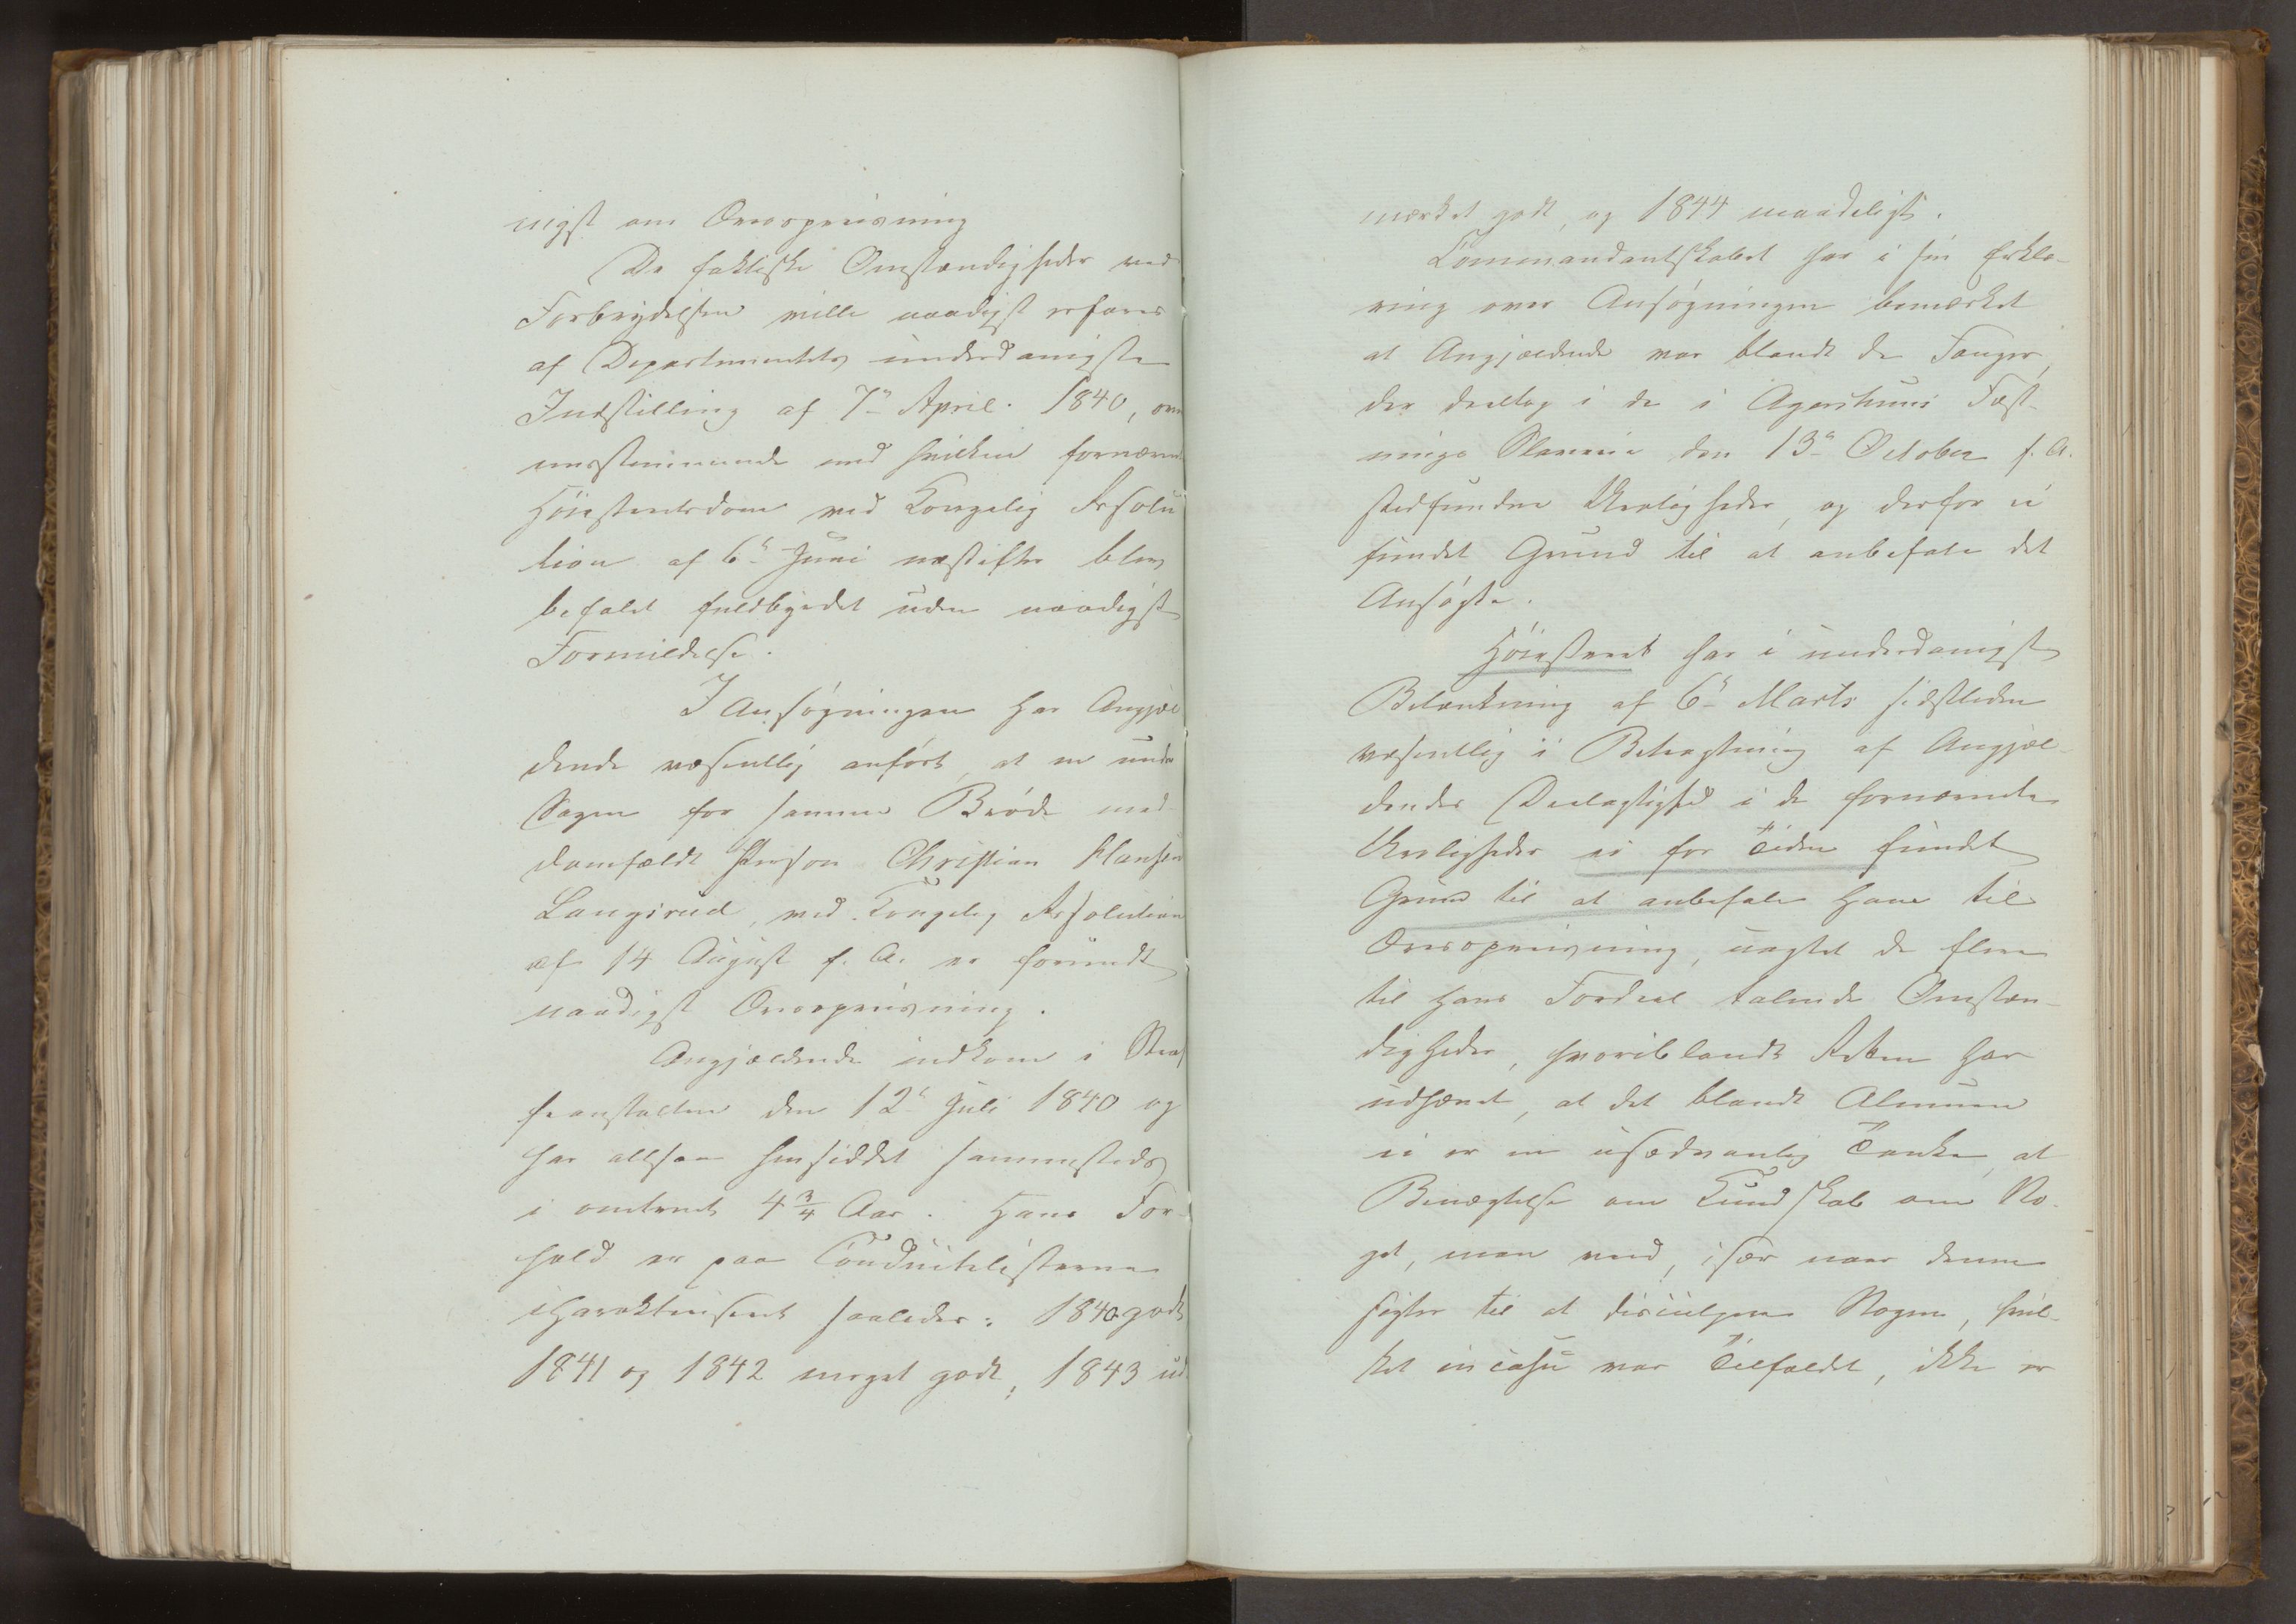 nigst om Oereisning
De faktiske Omstændigheder ved
Forbrydelsen ville naadigst erfares
af Departementets underdanigste
Indstilling af 7de April 1840, over
ensstemmende med hvilken fornævnte
Höiesteretsdom ved Kongelig Resolu
tion af 6te Juni næstefter blev
befalet fuldbyrdet uden naadigst
Formildelse.
I Ansøgningen har Angjæl
dende væsentlig anført, at en under
Sagen for samme Brøde med
domfældt Person Christian Hansen
Langsrud, ved Kongelig Resolution
af 14 August f. A. er forundt
naadigst Oereisning.
Angjældende indkom i Straf
feanstalten den 12te Juli 1840 og
har altsaa hensiddet sammesteds
i omtrent 4 3/4 Aar. Hans For-
hold er paa Conduitelisterne
charakteriseret saaledes: 1840 godt
1841 og 1842 meget godt, 1843 ud
mærket godt, og 1844 maadeligt.
Commandantskabet har i sin Erklæ-
ring over Ansøgningen bemærket
at Angjældende var blandt de Fanger,
der deeltog i de i Agershuus Fæst-
nings Slaverie den 13de October f. A.
stedfundne Uroligheder, og derfor ei
fundet Grund til at anbefale det
Ansøgte.
Höiesteret har i underdanigst
Betænkning af 6te Marts sidstleden
væsentlig i Betragtning af Angjæl-
dendes Deelagtighed i de fornævnte
Uroligheder ei for Tiden fundet
Grund til at anbefale ham til
Oereisning, uagtet de flere
til hans Fordeel talende Omstæn-
digheder, hvoriblandt Retten har
udhævet, at det blandt Almuen
ei er en usædvanlig Tanke, at
Benægtelse om Kundskab om No-
get, man veed, især naar denne
sigter til at disculpere Nogen, hvil-
ket in casu var Tilfældet, ikke er